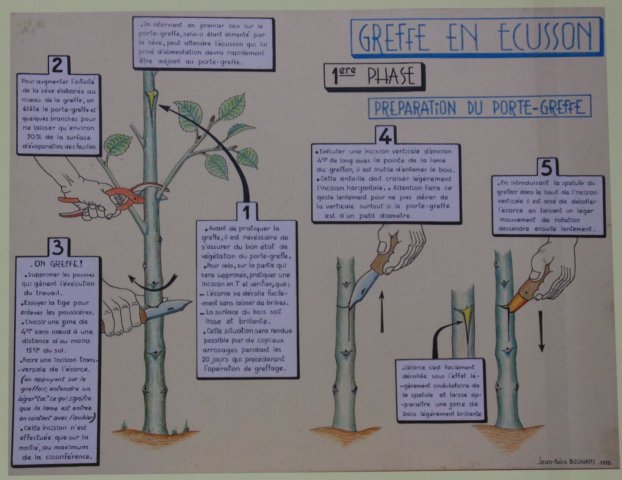 GREFFE EN ECUSSON
1ere PHASE
PREPARATION DU PORTE-GREFFE
• On intervient en premier lieu sur le
porte-greffe, celui-ci étant alimenté par
la sève, peut attendre l'écusson qui lui
privé d'alimentation devra rapidement
être ajouté au porte-greffe.
1
• Avant de pratiquer la
greffe, il est nécessaire de
s'assurer du bon état de
végétation du porte-greffe.
• Pour cela, sur la partie qui
sera supprimée, pratiquer une
incision en T et vérifier, que:
– L'écorce se décolle facile-
ment sans laisser de bribes.
– La surface du bois soit
lisse et brillante.
• Cette situation sera rendue
possible par de copieux
arrosages pendant les
20 jours qui précéderont
l'opération de greffage.
2
Pour augmenter l'activité
de la sève élaborée au
niveau de la greffe, on
étête le porte-greffe et
quelques branches pour
ne laisser qu'environ
30% de la surface
d'évaporation des feuilles
3
. ON GREFFE!
• Supprimer les pousses
qui gênent l'exécution
du travail.
• Essuyer la tige pour
enlever les poussières.
• Choisir une zone de
4cm sans nœud à une
distance d'au moins
15cm du sol.
• Faire une incision trans-
versale de l'écorce.
(en appuyant sur le
greffoir, entendre un
léger "toc" ce qui signifie
que la lame est entrée
en contact avec l'aubier)
• Cette incision n'est
effectuée que sur la
moitié, au maximum
de la circonférence.
4
• Exécuter une incision verticale d'environ
4cm de long avec la pointe de la lame
du greffoir, il est inutile d'entamer le bois.
• Cette entaille doit croiser légèrement
l'incision horizontale. • Attention faire ce
geste lentement pour ne pas dévier de
la verticale surtout si le porte-greffe
est d'un petit diamètre.
5
• En introduisant la spatule du
greffoir dans le haut de l'incision
verticale il est aisé de décoller
l'écorce en faisant un léger
mouvement de rotation
descendre ensuite lentement.
• L'écorce s'est facilement
décollée sous l'effet lé-
gèrement ondulatoire de
la spatule et laisse ap-
paraître une zone de
bois légèrement brillante
Jean-Felix